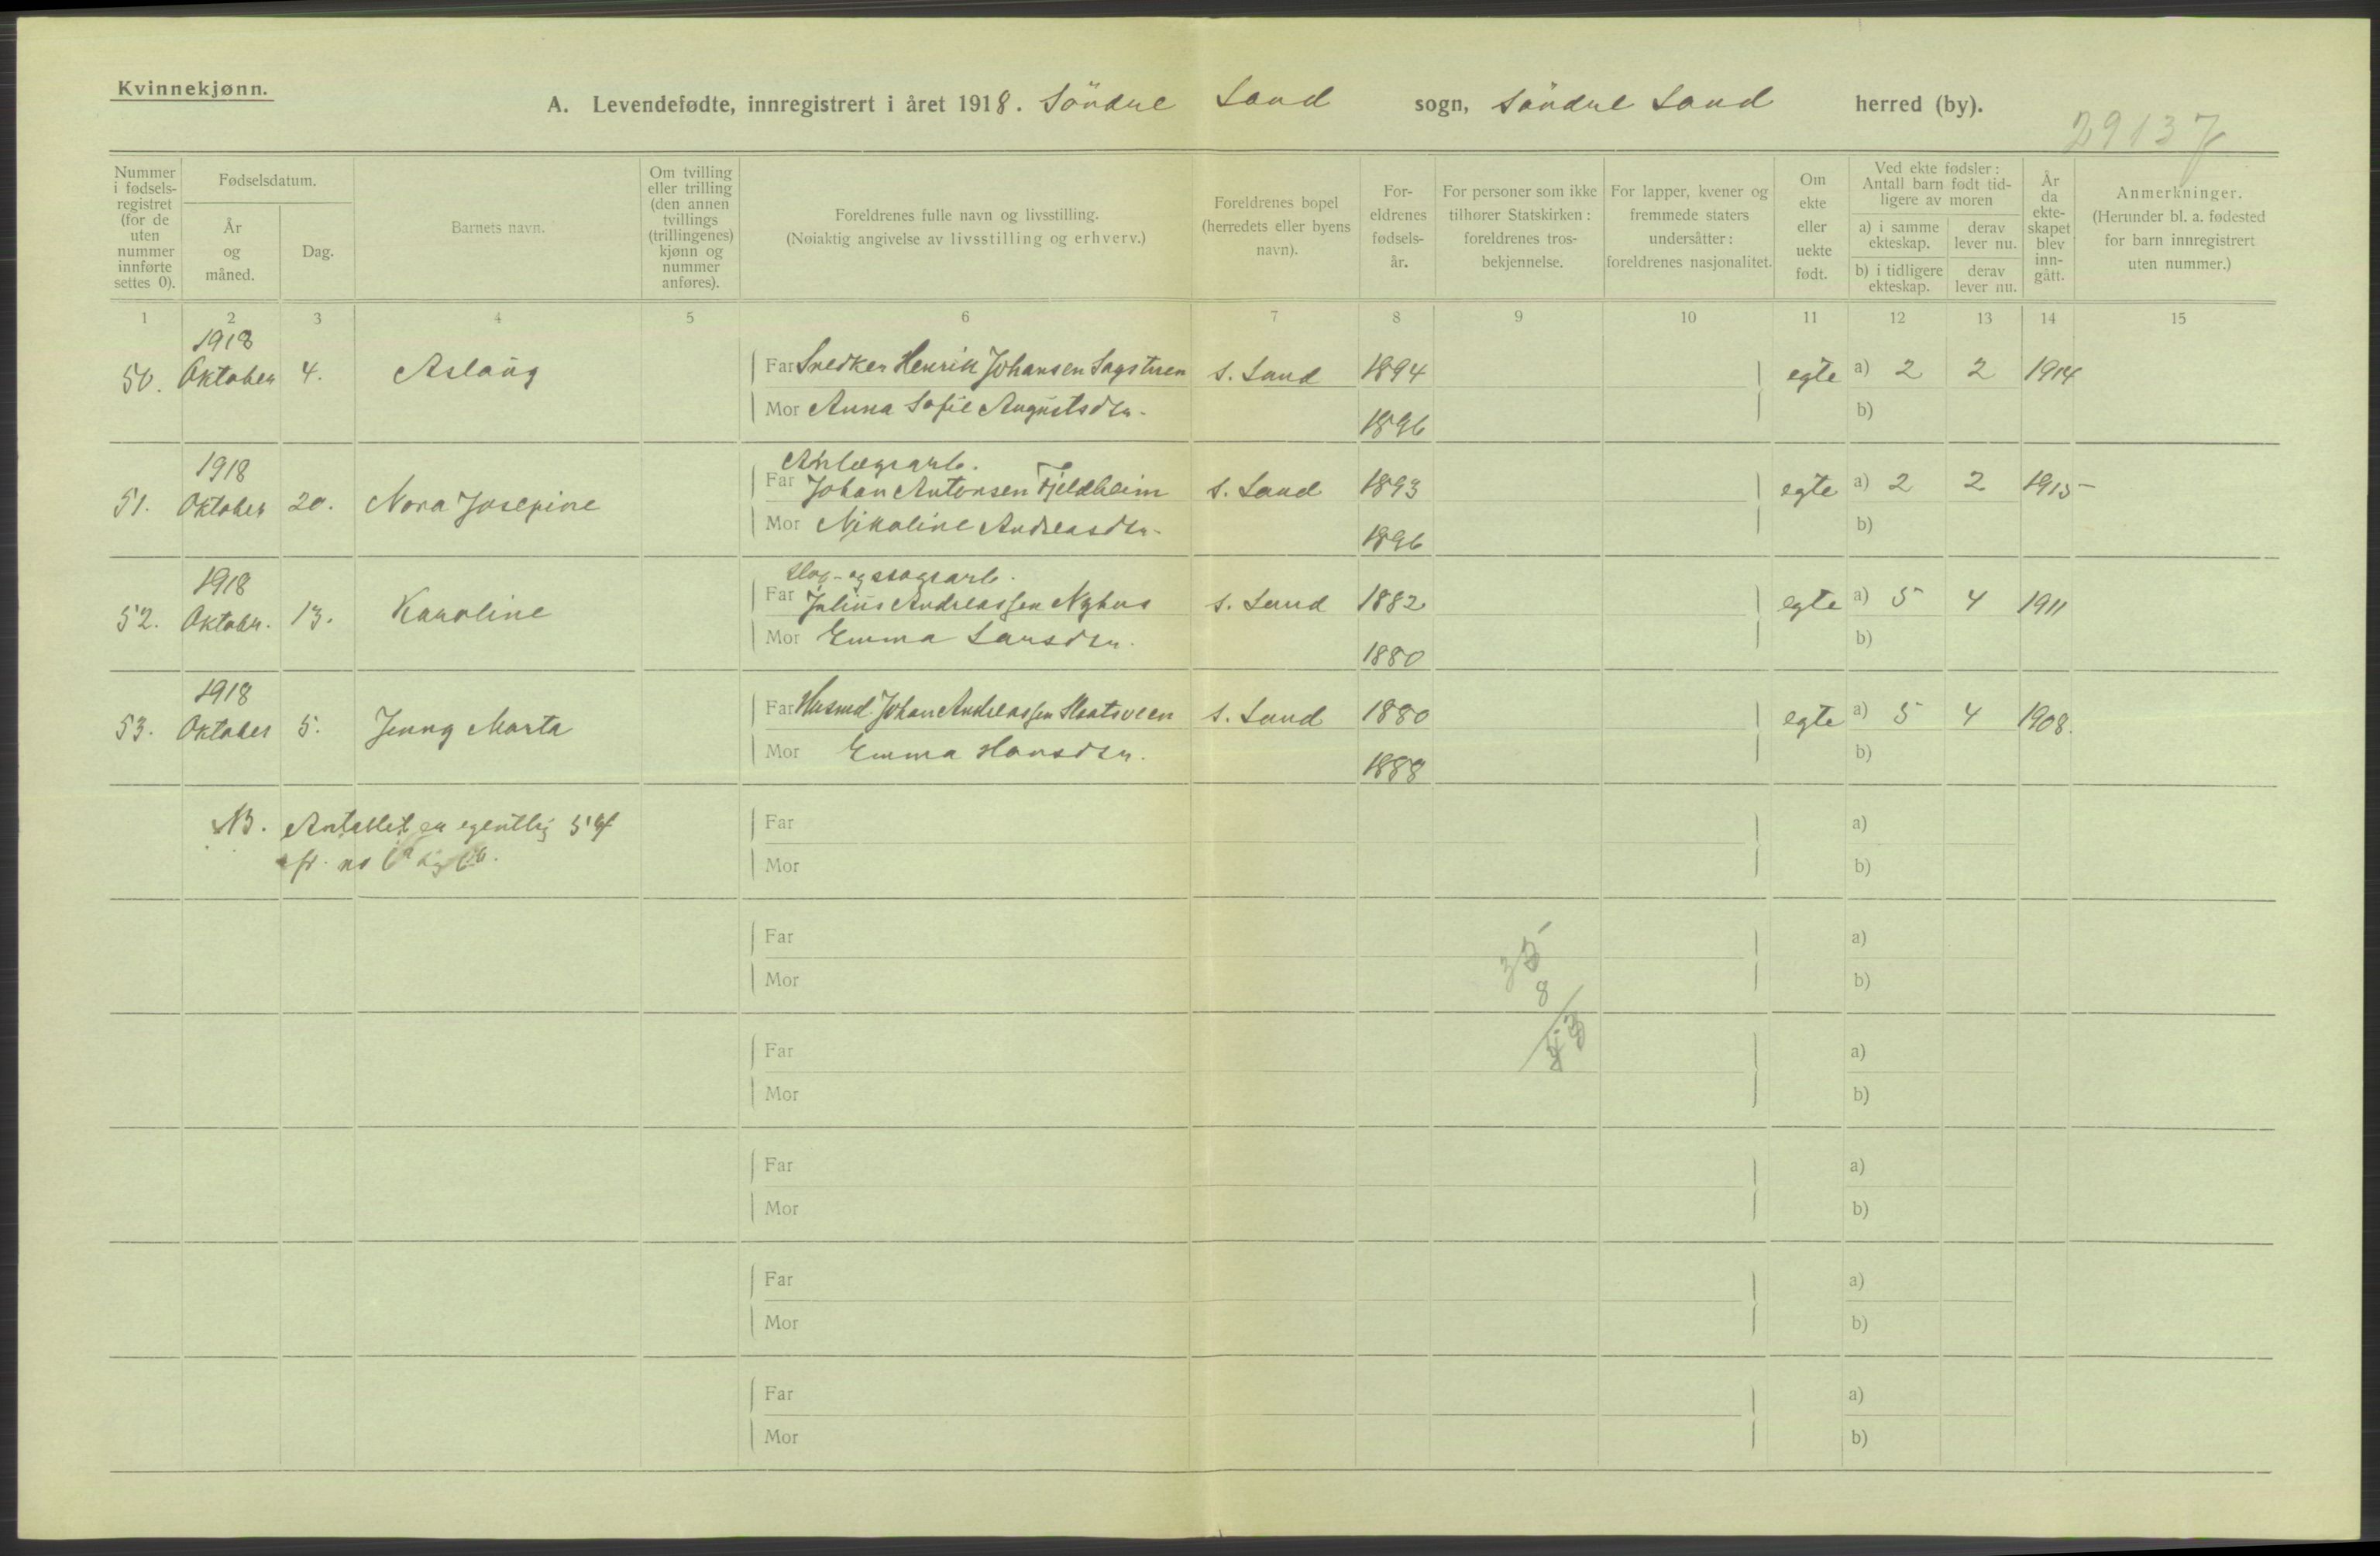 Kvinnekjønn.
A. Levendefødte, innregistrert i året 1918. Söndre Land sogn, Söndre Land herred (by).
29137
Nummer i fødselsregistret (for de uten nummer innførte settes 0).
Fødselsdatum.
År og måned.
Dag.
Barnets navn.
Om tvilling eller trilling (den annen tvillings (trillingenes) kjønn og nummer anføres).
Foreldrenes fulle navn og livsstilling.
(Nøiaktig angivelse av livsstilling og erhverv.)
Foreldrenes bopel (herredets eller byens navn).
For-eldrenes fødsels-år.
For personer som ikke tilhører Statskirken: foreldrenes tros-bekjennelse.
For lapper, kvener og fremmede staters undersåtter: foreldrenes nasjonalitet.
Om ekte eller uekte født.
Ved ekte fødsler: Antall barn født tid-ligere av moren
a) i samme ekteskap.
derav lever nu.
b) i tidligere ekteskap.
derav lever nu.
År da ekte-skapet blev inn-gått.
Anmerkninger.
(Herunder bl. a. fødested for barn innregistrert uten nummer.)
1 2 3 4 5 6 7 8 9 10 11 12 13 14 15
1918
50. Oktober 4. Aslaug Far Snedker Henrik Johansen Sagstuen S. Land 1894 egte a) 2 2 1914
Mor Anna Sofie Augustsdtr. 1896 b)
1918 Anlægsarb.
51. Oktober 20. Nora Josepine Far Johan Antonsen Fjeldheim S. Land 1893 egte a) 2 2 1915
Mor Nikoline Andreasdtr. 1896 b)
1918 - og skogsarb.
52. Oktobr. 13. Karoline Far Julius Andreassen Nyhus S. Land 1882 egte a) 5 4 1911
Mor Emma Larsdtr. 1880 b)
1918
53. Oktober 5. Jenny Marta Far Husmd. Johan Andreassen Slaatsveen S. Land 1880 egte a) 5 4 1908.
Mor Emma Hansdtr. 1888 b)
NB. Antallet er egentlig 54 Far a)
no 6a og 6b. Mor b)
Far a)
35
Mor b)
8
Far a)
Mor b)
Far a)
Mor b)
Far a)
Mor b)
Far a)
Mor b)